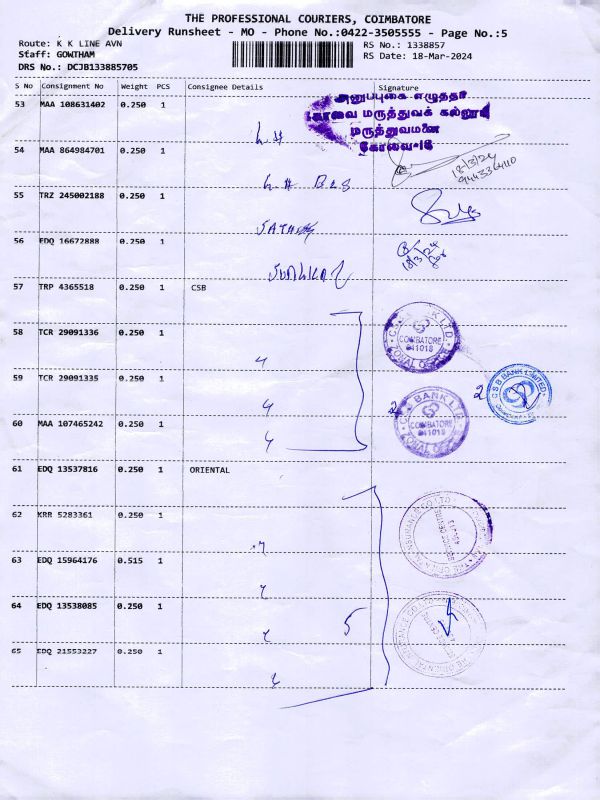 THE PROFESSIONAL COURIERS, COIMBATORE
Delivery Runsheet - MO - Phone No.:0422-3505555 - Page No.:5
Route: K K LINE AVN
Staff: GOWTHAM
DRS No.: DCJB133885705
RS No.: 1338857
RS Date: 18-Mar-2024
S No Consignment No Weight PCS Consignee Details Signature
53 MAA 108631402 0.250 1
அனுப்புகை எழுத்தர்
கோவை மருத்துவக் கல்லூரி
மருத்துவமனை
கோவை-18
54 MAA 864984701 0.250 1
18/3/24
9443364110
55 TRZ 245002188 0.250 1
56 EDQ 16672888 0.250 1
18/3/24
57 TRP 4365518 0.250 1 CSB
58 TCR 29091336 0.250 1
CSB BANK LTD
COIMBATORE
641018
ZONAL OFFICE
59 TCR 29091335 0.250 1
2 CSB BANK LIMITED
60 MAA 107465242 0.250 1
CSB BANK LTD
COIMBATORE
641018
61 EDQ 13537816 0.250 1 ORIENTAL
62 KRR 5283361 0.250 1
63 EDQ 15964176 0.515 1
64 EDQ 13538085 0.250 1 5
65 EDQ 21553227 0.250 1